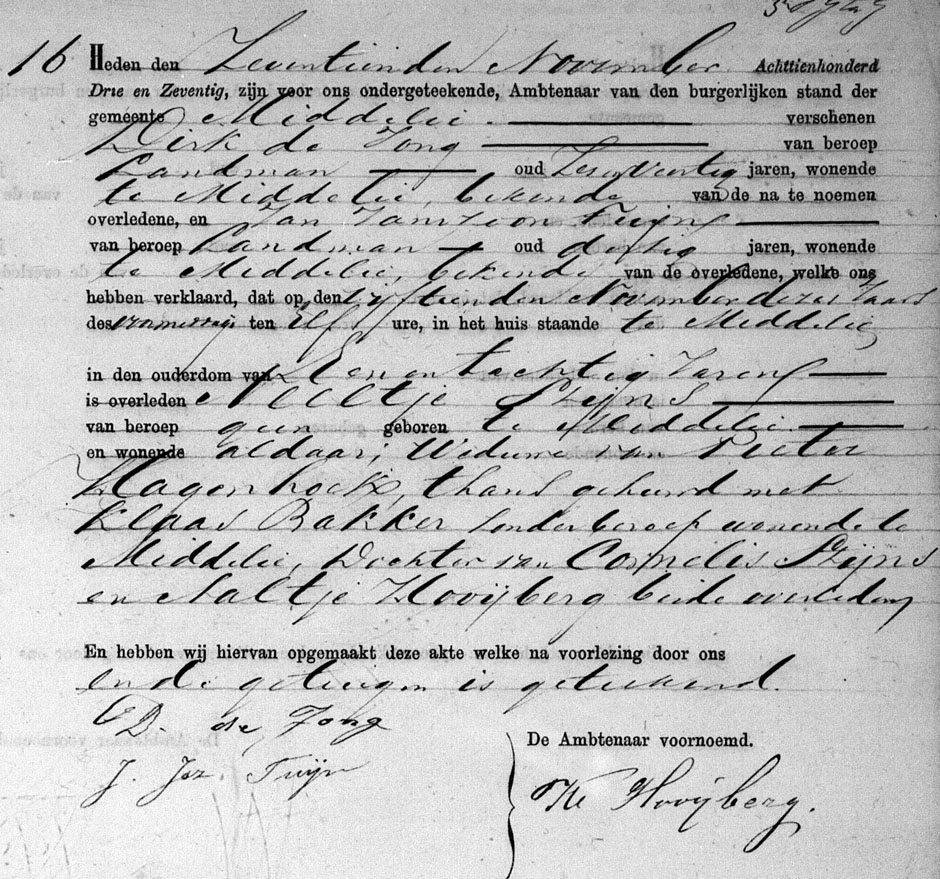 16 Heden den Zeventienden November Achttienhonderd
Drie en Zeventig, zijn voor ons ondergeteekende, Ambtenaar van den burgerlijken stand der
gemeente Middelie verschenen
Dirk de Jong van beroep
Landman oud Zesenveertig jaren, wonende
te Middelie, bekende van de na te noemen
overledene, en Jan Janszoon Tuijn
van beroep Landman oud dertig jaren, wonende
te Middelie, bekende van de overledene, welke ons
hebben verklaard, dat op den Vijftienden November dezes Jaars
des voormiddags ten Elf ure, in het huis staande te Middelie
in den ouderdom van Een en tachtig Jaren
is overleden Neeltje Stijns
van beroep geen geboren te Middelie
en wonende aldaar, Weduwe van Pieter
Hagenhoek, thans gehuwd met
Klaas Bakker zonder beroep wonende te
Middelie, Dochter van Cornelis Stijns
en Aaltje Hooijberg beide overleden
En hebben wij hiervan opgemaakt deze akte welke na voorlezing door ons
en de getuigen is geteekend.
D. de Jong
De Ambtenaar voornoemd.
J. Jsz. Tuijn
Hooijberg.